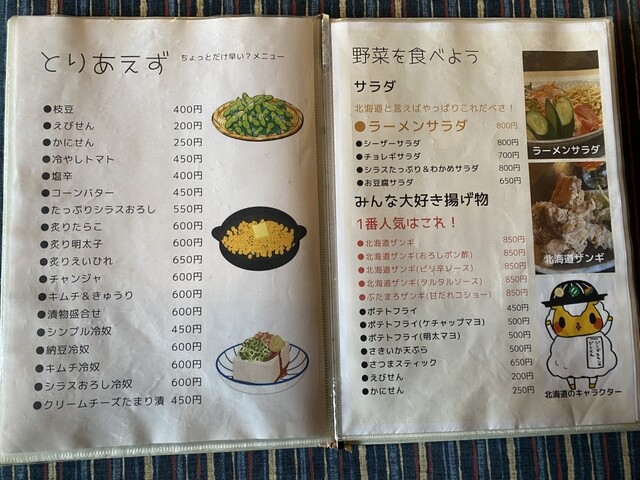 とりあえず ちょっとだけ早い？メニュー
●枝豆 400円
●えびせん 200円
●かにせん 250円
●冷やしトマト 450円
●塩辛 400円
●コーンバター 450円
●たっぷりシラスおろし 550円
●炙りたらこ 600円
●炙り明太子 600円
●炙りえいひれ 650円
●チャンジャ 600円
●キムチ＆きゅうり 600円
●漬物盛合せ 600円
●シンプル冷奴 450円
●納豆冷奴 600円
●キムチ冷奴 600円
●シラスおろし冷奴 600円
●クリームチーズたまり漬 450円
野菜を食べよう
サラダ
北海道と言えばやっぱりこれだべさ！
●ラーメンサラダ 800円
●シーザーサラダ 800円
●チョレギサラダ 700円
●シラスたっぷり＆わかめサラダ 800円
●お豆腐サラダ 650円
みんな大好き揚げ物
1番人気はこれ！
●北海道ザンギ 850円
●北海道ザンギ(おろしポン酢) 850円
●北海道ザンギ(ピリ辛ソース) 850円
●北海道ザンギ(タルタルソース) 850円
●ぶたまろザンギ(甘だれコショー) 850円
●ポテトフライ 450円
●ポテトフライ(ケチャップマヨ) 500円
●ポテトフライ(明太マヨ) 500円
●さきいか天ぷら 500円
●さつまスティック 650円
●えびせん 200円
●かにせん 250円
ラーメンサラダ
北海道ザンギ
北海道のキャラクター